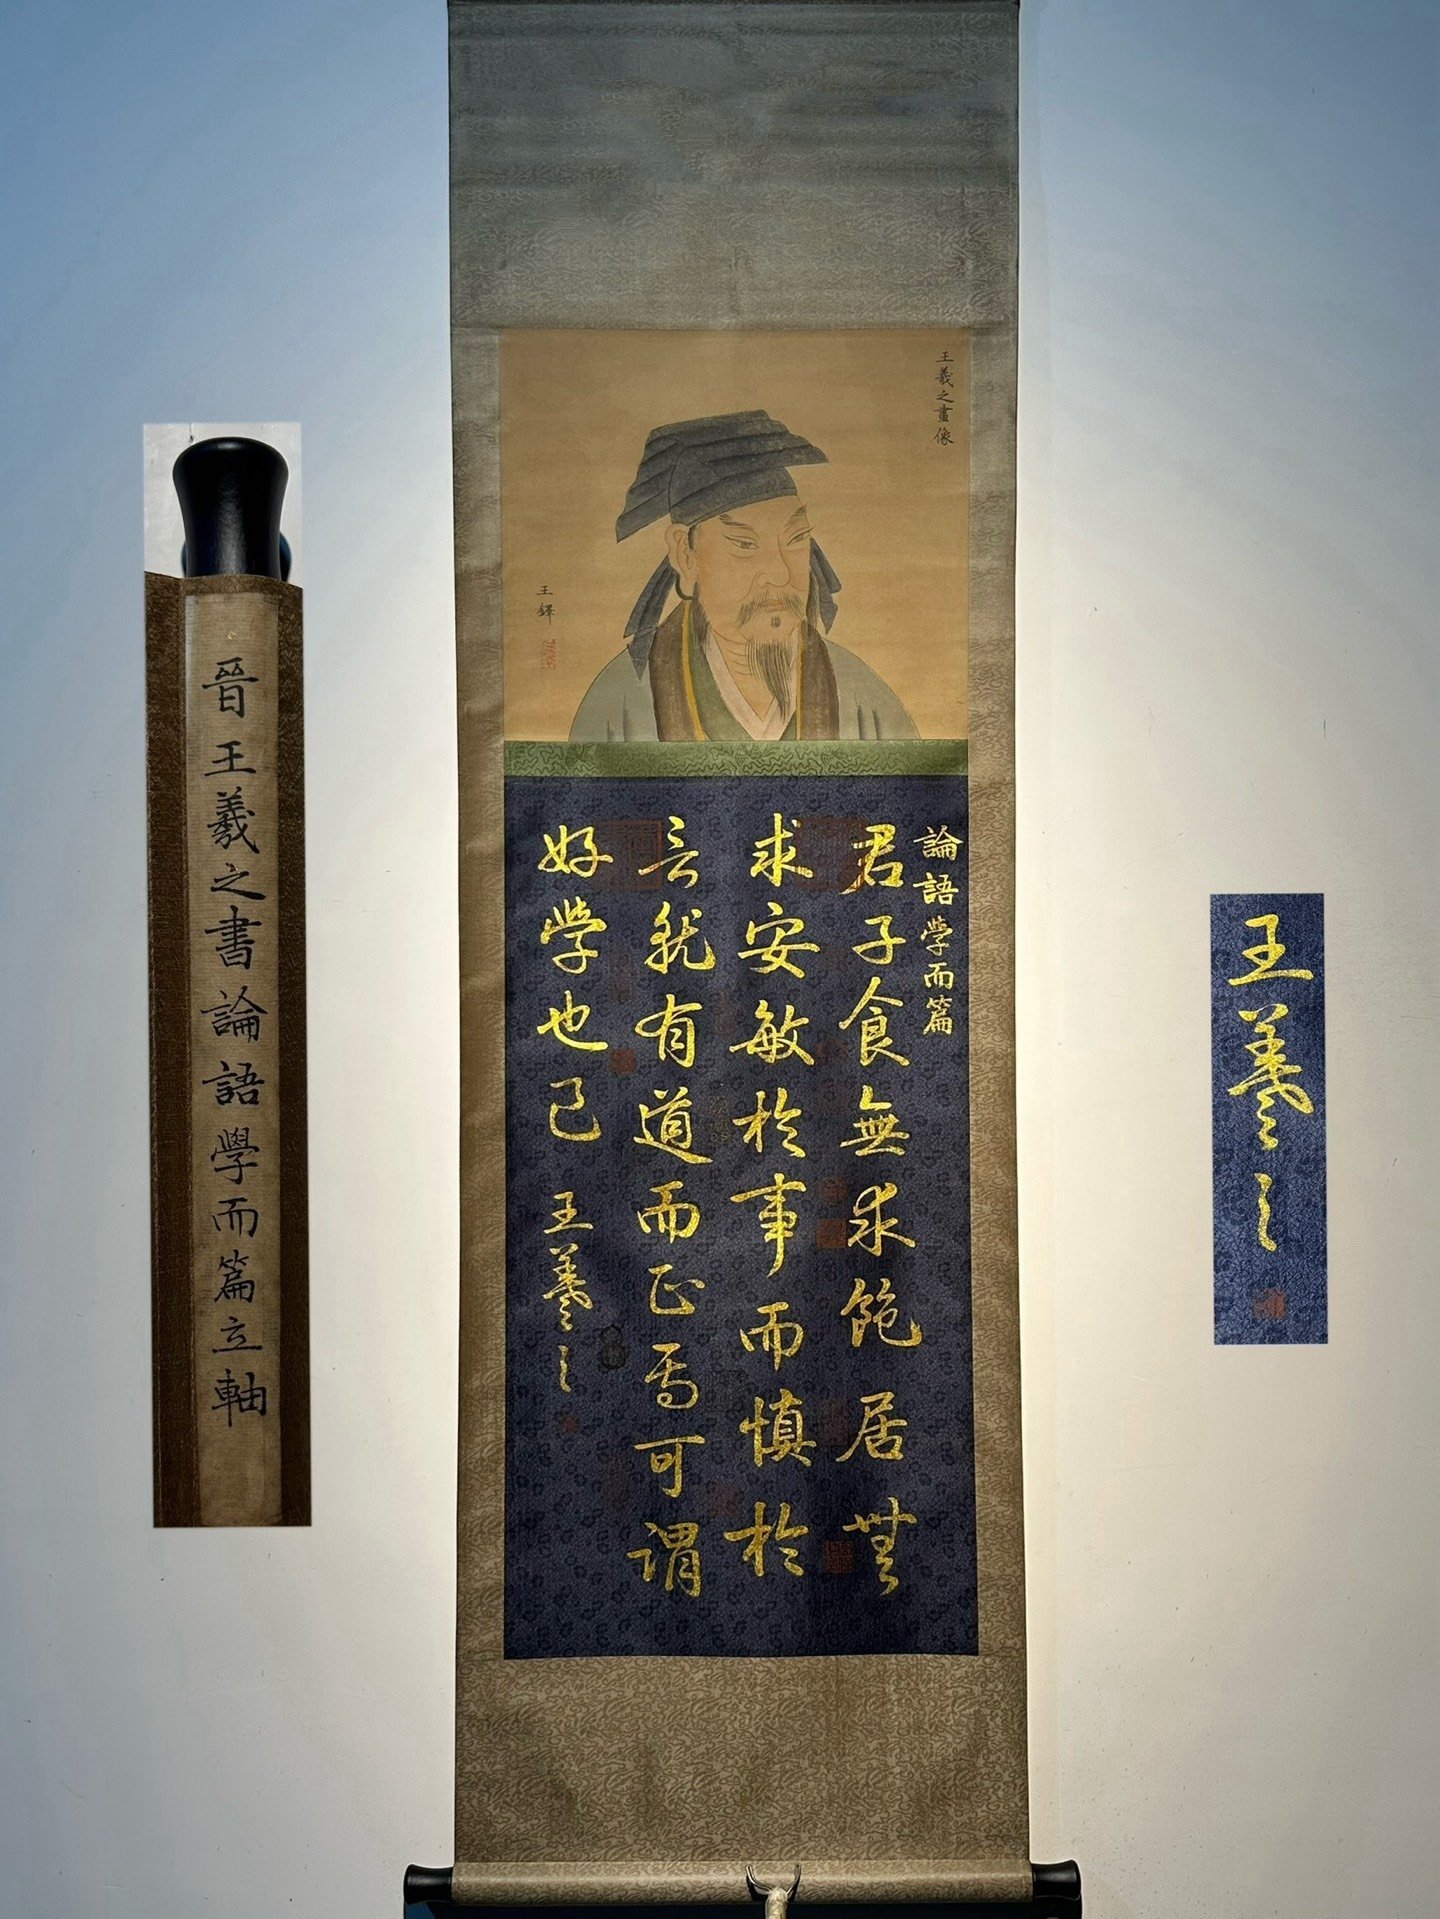 晉王羲之書論語學而篇立軸
王羲之畫像
王鐸
論語学而篇
君子食無求飽居無
求安敏於事而慎於
言犹有道而正焉可謂
好学也已
王羲之
王羲之